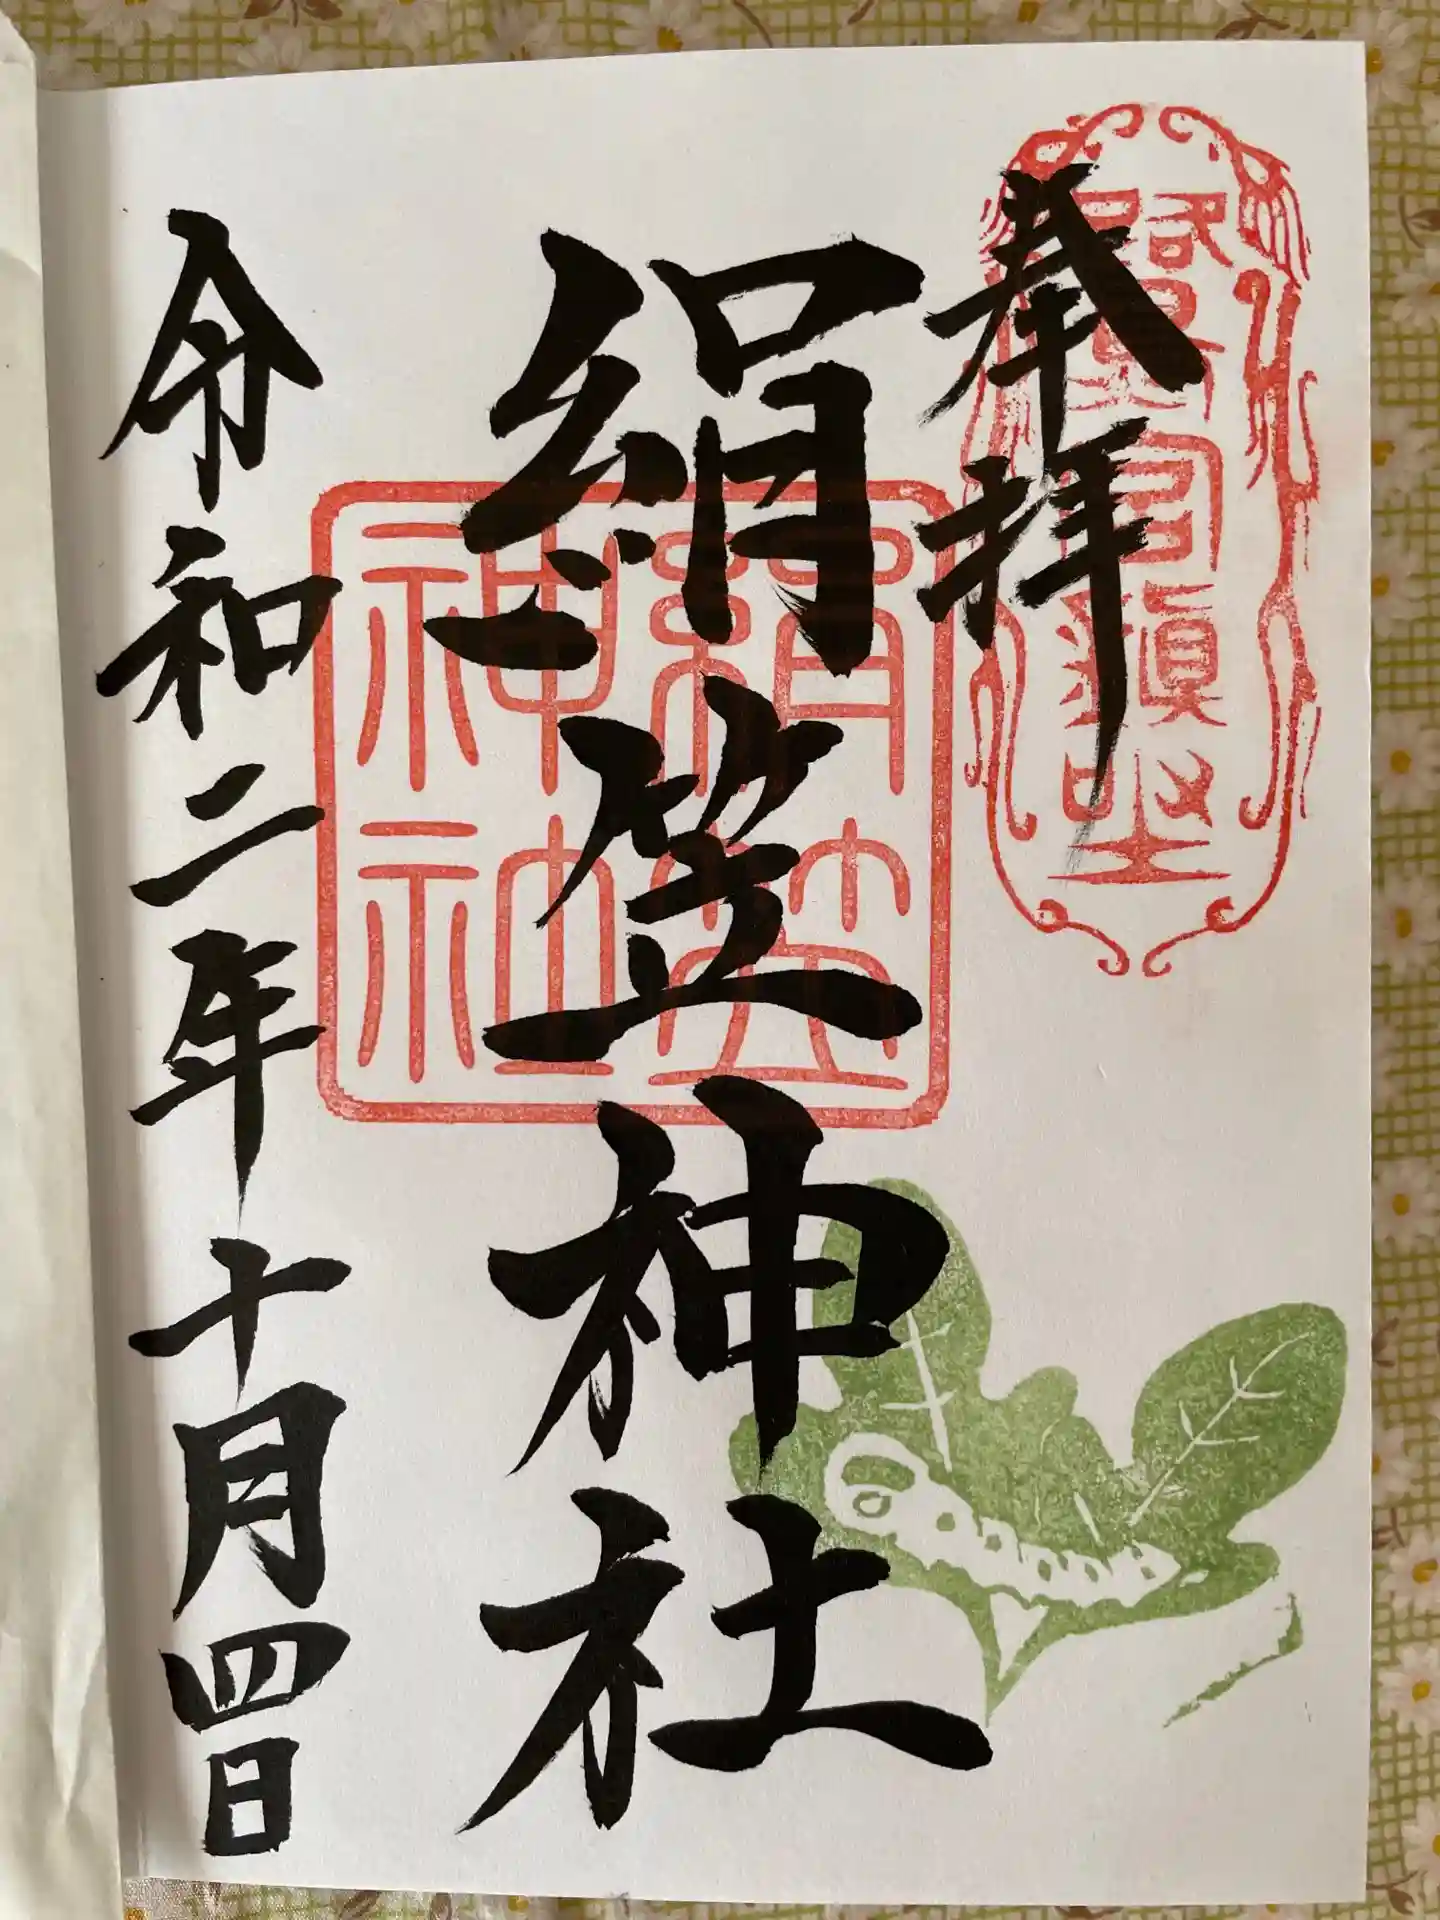 奉拝
鎮坐
絹笠神社
絹笠
神社
令和二年十月四日